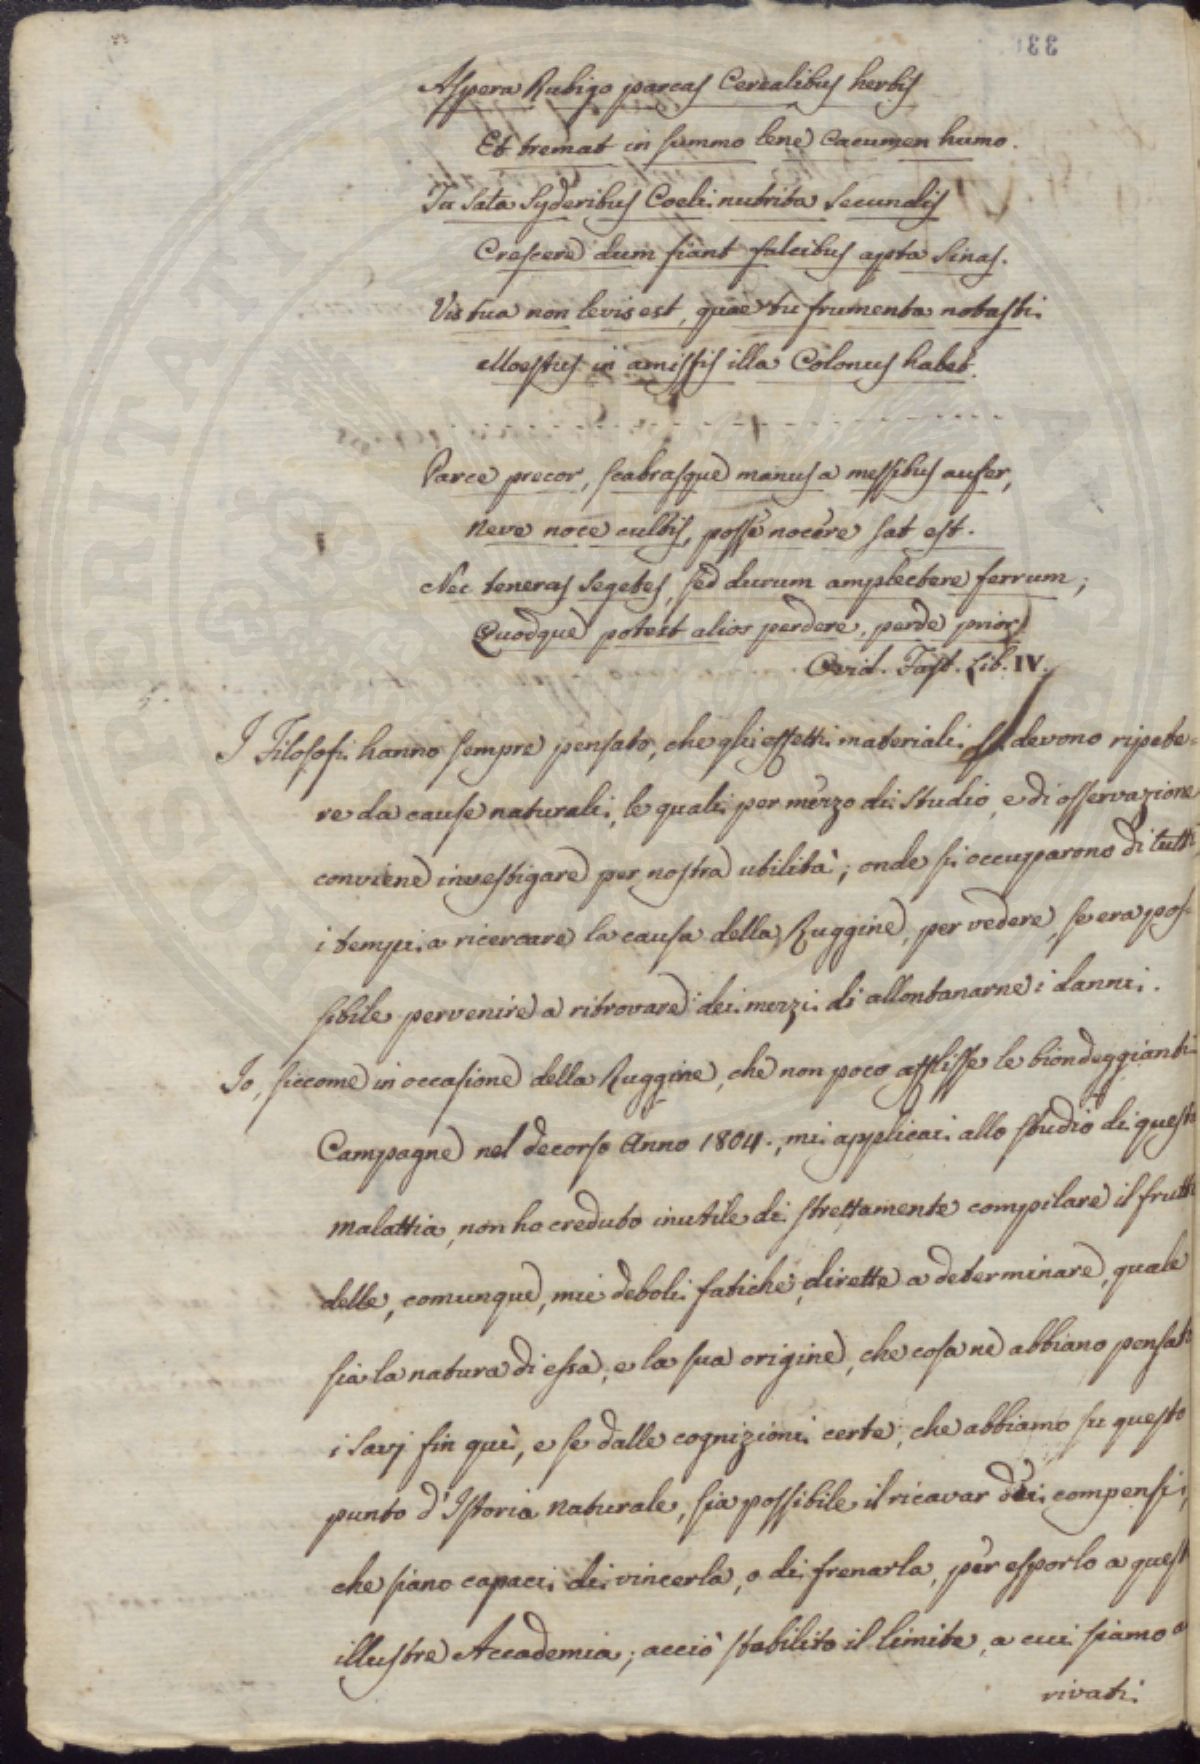 Aspera Rubigo parcas Cerealibus herbis
Et tremat in summo lene cacumen humo.
Tu sata Syderibus Coeli nutrita secundis
Crescere dum fiant falcibus apta sinas.
Vis tua non levis est, quae tu frumenta notasti
Moestus in amissis illa Colonus habet.
Parce precor, scabrasque manus a messibus aufer,
Neve noce cultis, posse nocere sat est.
Nec teneras segetes, sed durum amplectere ferrum;
Quodque potest alios perdere, perde prior
Ovid. Fast. Lib. IV.
I Filosofi hanno sempre pensato, che gli effetti materiali si devono ripete=
re da cause naturali, le quali per mezzo di studio, e di osservazione
conviene investigare per nostra utilità; onde si occuparono di tutti
i tempi a ricercare la causa della Ruggine, per vedere, se era pos=
sibile pervenire a ritrovare dei mezzi di allontanarne i danni.
Io, siccome in occasione della Ruggine, che non poco afflisse le biondeggianti
Campagne nel decorso Anno 1804., mi applicai allo studio di questa
malattia, non ho creduto inutile di strettamente compilare il frutto
delle, comunque, mie deboli fatiche, dirette a determinare, quale
sia la natura di essa, e la sua origine, che cosa ne abbiano pensato
i Savj fin quì, e se dalle cognizioni certe, che abbiamo su questo
punto d'Istoria naturale, sia possibile il ricavar dei compensi,
che siano capaci di vincerla, o di frenarla, per esporlo a quest
illustre Accademia; acciò stabilito il limite, a cui siamo a
rivati
POSSE